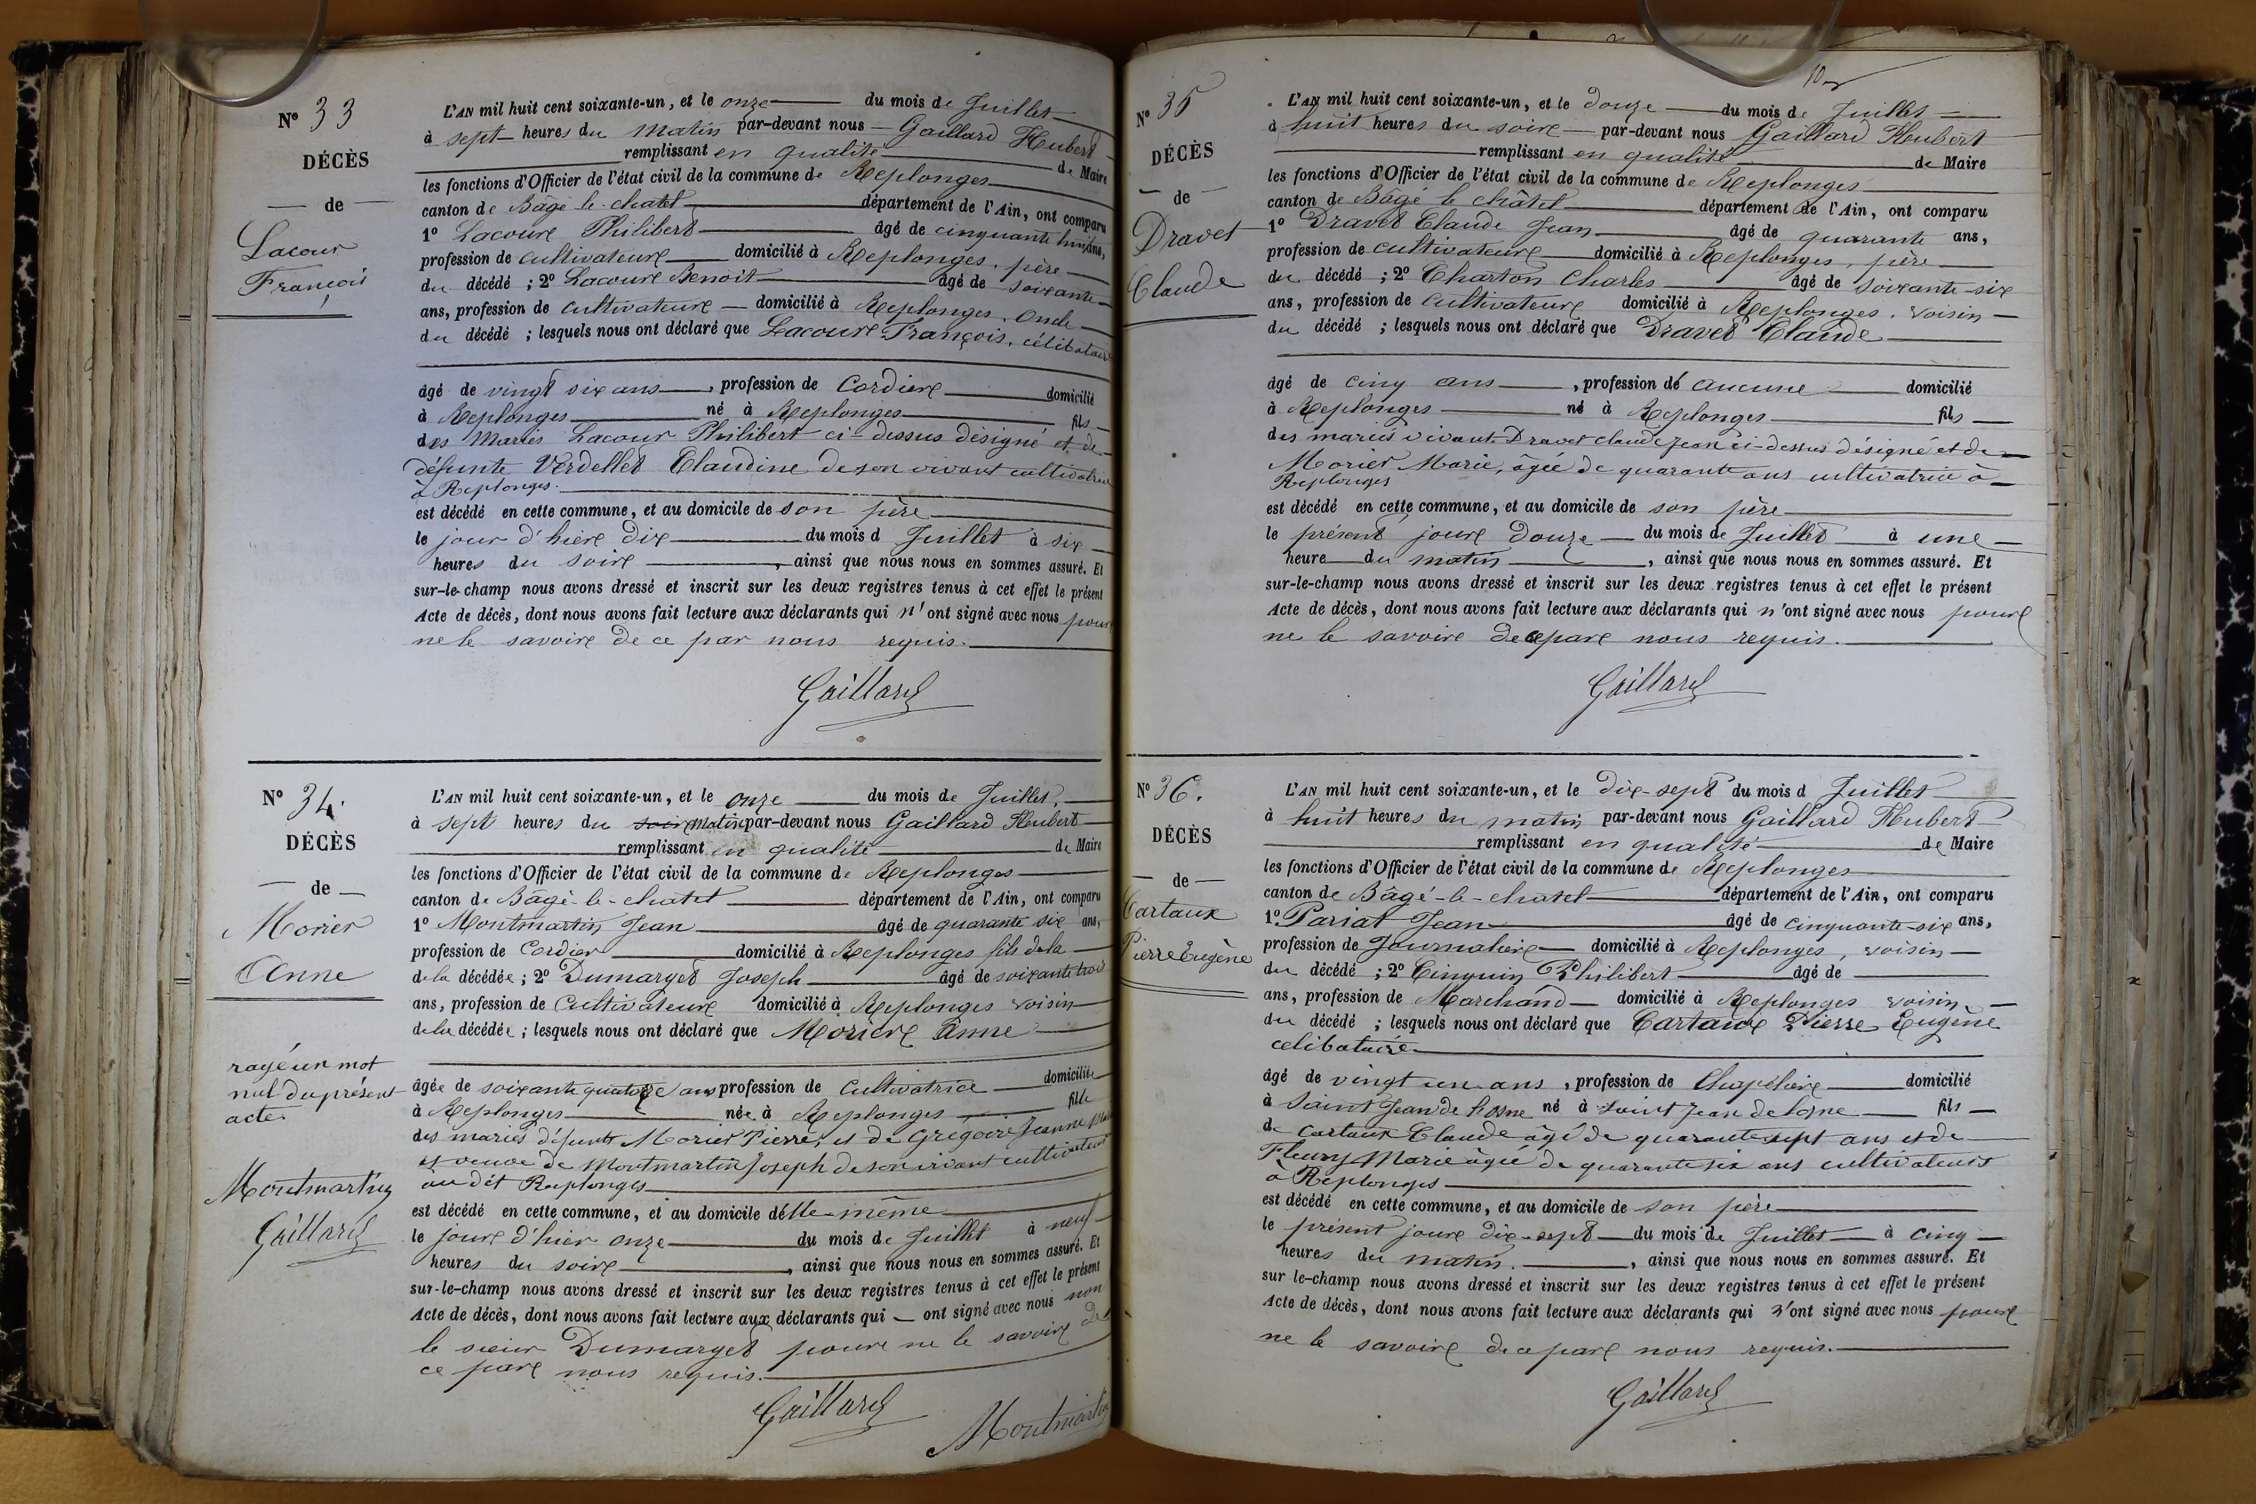 N° 33
DÉCÈS
— de —
Lacour
François
L'AN mil huit cent soixante-un, et le onze du mois de Juillet
à sept heures du matin par-devant nous Gaillard Hubert
remplissant en qualité de Maire
les fonctions d'Officier de l'état civil de la commune de Replonges
canton de Bâgé-le-chatel département de l'Ain, ont comparu
1° Lacoure Philibert âgé de cinquante huit ans,
profession de cultivateure domicilié à Replonges, père
du décédé ; 2° Lacoure Benoit âgé de soixante
ans, profession de cultivateure domicilié à Replonges, oncle
du décédé ; lesquels nous ont déclaré que Lacoure François, célibataire
âgé de vingt six ans, profession de Cordiere domicilié
à Replonges né à Replonges fils
des Mariés Lacour Philibert ci-dessus désigné et de
défunte Verdellet Claudine de son vivant cultivatrice
à Replonges.
est décédé en cette commune, et au domicile de son père
le jour d'hiere dix du mois d Juillet à six
heures du soire, ainsi que nous nous en sommes assuré. Et
sur-le-champ nous avons dressé et inscrit sur les deux registres tenus à cet effet le présent
Acte de décès, dont nous avons fait lecture aux déclarants qui n'ont signé avec nous pour
ne le savoire de ce par nous requis.
Gaillard
N° 34.
DÉCÈS
— de —
Morier
Anne
rayé un mot
nul du présent
acte.
Montmartin
Gaillard
L'AN mil huit cent soixante-un, et le onze du mois de Juillet,
à sept heures du soir matin par-devant nous Gaillard Hubert
remplissant en qualité de Maire
les fonctions d'Officier de l'état civil de la commune de Replonges
canton de Bâgé-le-chatel département de l'Ain, ont comparu
1° Montmartin Jean âgé de quarante six ans,
profession de Cordier domicilié à Replonges fils de la
de la décédée ; 2° Dumarget Joseph âgé de soixante trois
ans, profession de Cultivateure domicilié à Replonges voisin
de la décédée ; lesquels nous ont déclaré que Moriere Anne
âgée de soixante quatorze ans profession de Cultivatrice domiciliée
à Replonges née à Replonges fille
des mariés défunts Morier Pierre, et de Grégoire Jeanne
et veuve de Montmartin Joseph de son vivant cultivateur
au dit Replonges
est décédé en cette commune, et au domicile d'elle-même
le joure d'hier onze du mois de Juillet à neuf
heures du soire, ainsi que nous nous en sommes assuré. Et
sur-le-champ nous avons dressé et inscrit sur les deux registres tenus à cet effet le présent
Acte de décès, dont nous avons fait lecture aux déclarants qui — ont signé avec nous non
le sieur Dumarget poure ne le savoire de
ce pare nous requis.
Gaillard Montmartin
N° 35
DÉCÈS
— de —
Dravet
Claude
L'AN mil huit cent soixante-un, et le douze du mois de Juillet
à huit heures du soire par-devant nous Gaillard Hubert
remplissant en qualité de Maire
les fonctions d'Officier de l'état civil de la commune de Replonges
canton de Bâgé le châtel département de l'Ain, ont comparu
1° Dravet Claude Jean âgé de quarante ans,
profession de cultivateure domicilié à Replonges, père
du décédé ; 2° Charton Charles âgé de soixante-six
ans, profession de Cultivateure domicilié à Replonges, voisin
du décédé ; lesquels nous ont déclaré que Dravet Claude
âgé de cinq ans, profession dé aucune domicilié
à Replonges né à Replonges fils
des mariés vivants Dravet Claude Jean ci-dessus désigné et de
Morier Marie, âgée de quarante ans cultivatrice à
Replonges
est décédé en cette commune, et au domicile de son père
le présent joure douze du mois de Juillet à une
heure du matin, ainsi que nous nous en sommes assuré. Et
sur-le-champ nous avons dressé et inscrit sur les deux registres tenus à cet effet le présent
Acte de décès, dont nous avons fait lecture aux déclarants qui n'ont signé avec nous poure
ne le savoire de ce pare nous requis.
Gaillard
N° 36.
DÉCÈS
— de —
Cartaux
Pierre Eugène
L'AN mil huit cent soixante-un, et le dix-sept du mois d Juillet
à huit heures du matin par-devant nous Gaillard Hubert
remplissant en qualité de Maire
les fonctions d'Officier de l'état civil de la commune de Replonges
canton de Bâgé-le-chatel département de l'Ain, ont comparu
1° Pariat Jean âgé de cinquante-six ans,
profession de Journaliere domicilié à Replonges, voisin
du décédé ; 2° Cinquin Philibert âgé de
ans, profession de Marchand domicilié à Replonges voisin
du décédé ; lesquels nous ont déclaré que Cartaux Pierre Eugène
celibataire
âgé de vingt un ans, profession de Chapeliere domicilié
à Saint Jean de losne né à saint Jean de losne fils
de cartaux Claude âgé de quarante sept ans et de
Fleury Marie âgée de quarante six ans cultivateurs
à Replonges
est décédé en cette commune, et au domicile de son père
le présent joure dix-sept du mois de Juillet à cinq
heures du matin, ainsi que nous nous en sommes assuré. Et
sur le-champ nous avons dressé et inscrit sur les deux registres tenus à cet effet le présent
Acte de décès, dont nous avons fait lecture aux déclarants qui n'ont signé avec nous poure
ne le savoire de ce pare nous requis.
Gaillard